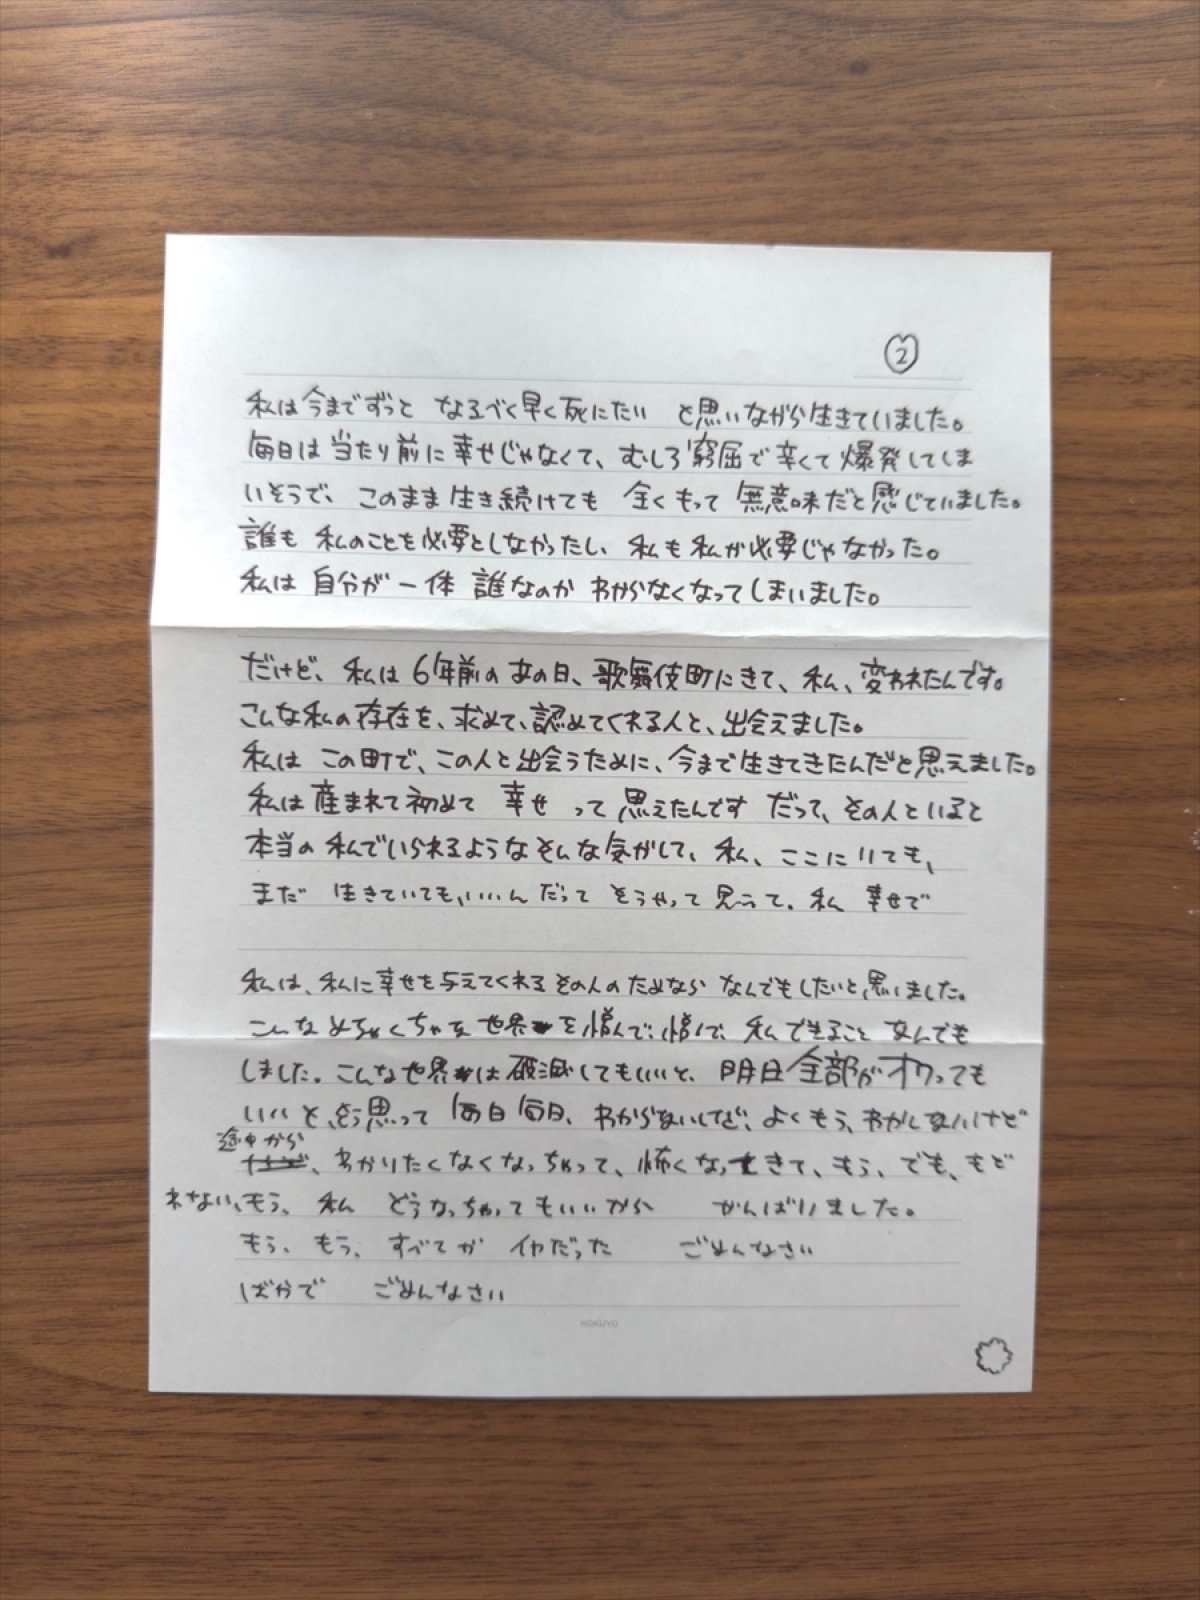 ②
私は今までずっと なるべく早く死にたい と思いながら生きていました。
毎日は当たり前に幸せじゃなくて、むしろ窮屈で辛くて爆発してしま
いそうで、このまま生き続けても 全くもって 無意味だと感じていました。
誰も 私のことを必要としなかったし、私も私が必要じゃなかった。
私は 自分が一体 誰なのか わからなくなってしまいました。
だけど、私は6年前のあの日、歌舞伎町にきて、私、変われたんです。
こんな私の存在を、求めて、認めてくれる人と、出会えました。
私は この町で、この人と出会うために、今まで生きてきたんだと思えました。
私は産まれて初めて 幸せ って 思えたんです だって、その人といると
本当の私でいられるようなそんな気がして、私、ここにいても、
まだ 生きていても、いいんだって そうやって思って、私 幸せで
私は、私に幸せを与えてくれるその人のためなら なんでもしたいと、思いました。
こんなめちゃくちゃな世界を憎んで、憎んで、私できること なんでも
しました。こんな世界は破滅してもいいと、明日全部がオワっても
いいと、そう思って 毎日毎日、わからないけど、よくもう、わかんないけど
途中から
、わかりたくなくなっちゃって、怖くなってきて、もう、でも、もど
れない、もう、私 どうなっちゃってもいいから がんばりました。
もう、もう、すべてが イヤだった ごめんなさい
ばかで ごめんなさい
KOKUYO